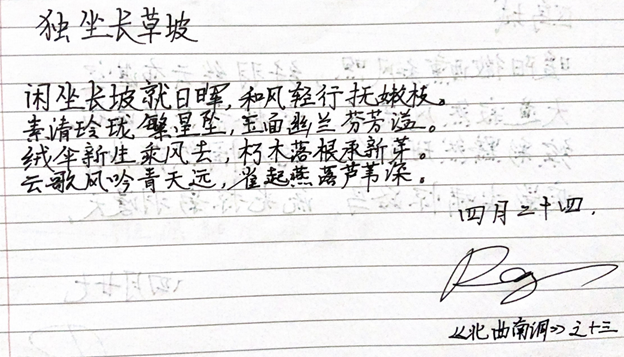 独坐长草坡
闲坐长坡就日晖,和风轻行抚嫩枝。
素清玲珑繁星坠,玉面幽兰芬芳溢。
绒伞新生乘风去,朽木落根承新芽。
云歌风吟青天远,雀起燕落芦苇深。
四月二十四.
《北曲南洞》之十三